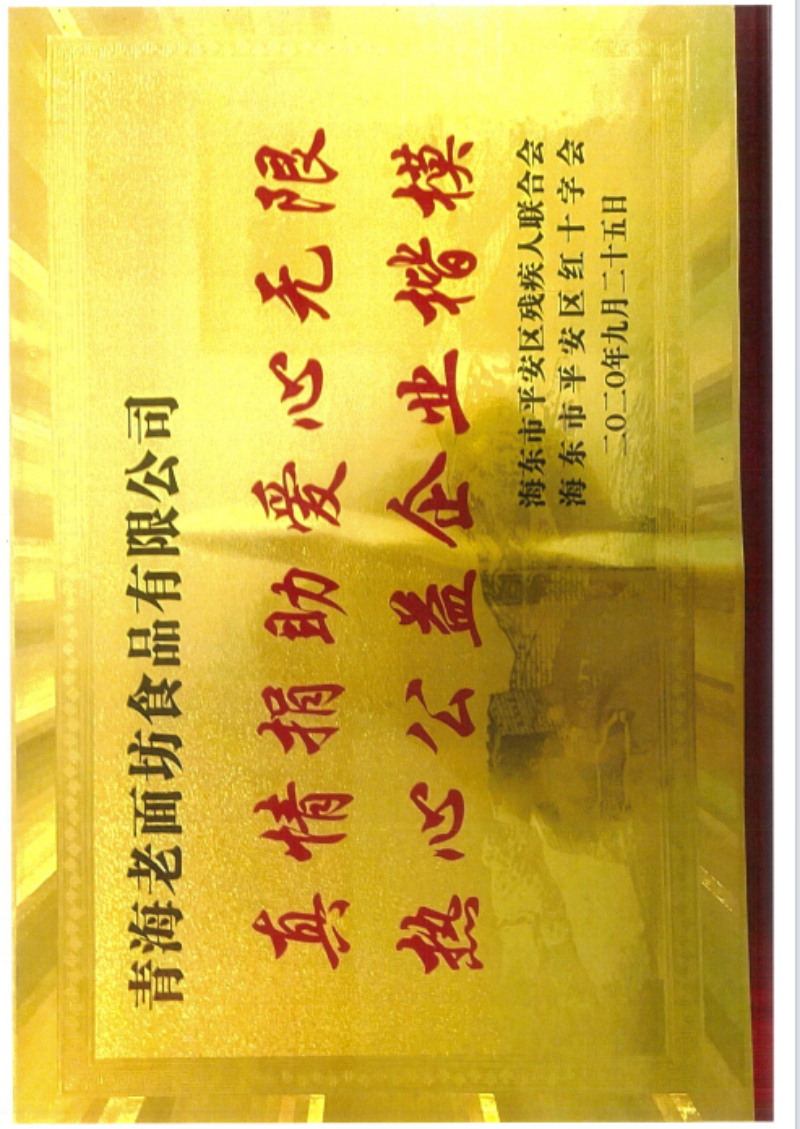 青海老面坊食品有限公司
真情捐助爱心无限
热心公益企业楷模
海东市平安区残疾人联合会
海东市平安区红十字会
二〇二〇年九月二十五日